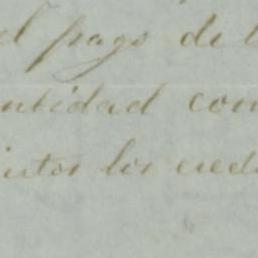 el pago de l
ntidad con
intos los cred